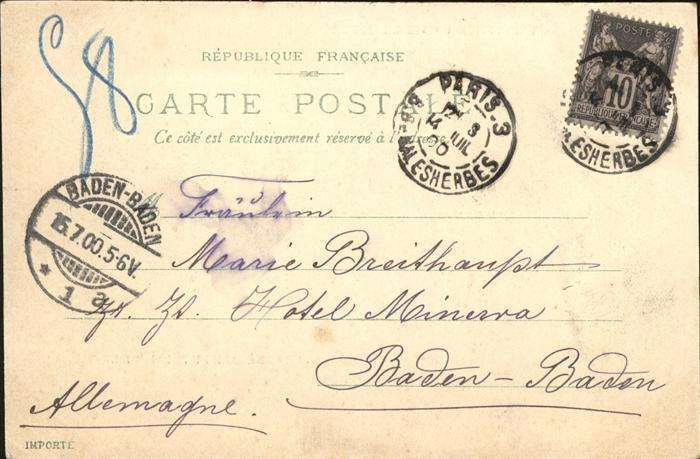 58
RÉPUBLIQUE FRANÇAISE
CARTE POSTALE
Ce côté est exclusivement réservé à l'adresse
PARIS-3
3
JUIL
00
BD MALESHERBES
POSTE
10
RÉPUBLIQUE FRANÇAISE
PARIS
MALESHERBES
BADEN-BADEN
15.7.00.5-6V.
* 1 a
Fräulein
Marie Breithaupt
Zt. Hotel Minerva
Baden-Baden
Allemagne.
IMPORTÉ